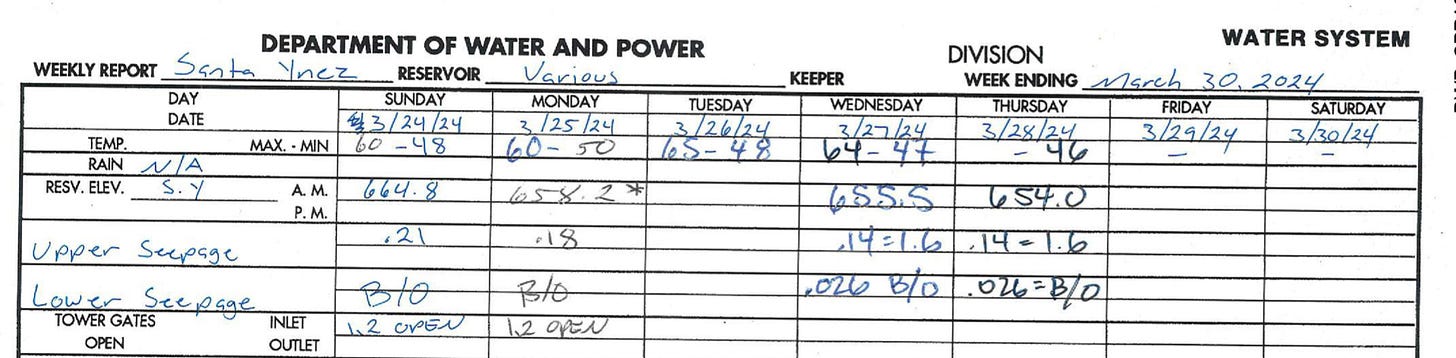 DEPARTMENT OF WATER AND POWER DIVISION WATER SYSTEM
WEEKLY REPORT Santa Ynez RESERVOIR Various KEEPER WEEK ENDING March 30, 2024
DAY SUNDAY MONDAY TUESDAY WEDNESDAY THURSDAY FRIDAY SATURDAY
DATE 3/24/24 3/25/24 3/26/24 3/27/24 3/28/24 3/29/24 3/30/24
TEMP. MAX. - MIN 60 - 48 60 - 50 65 - 48 64 - 47 - 46 - -
RAIN N/A
RESV. ELEV. S.Y A. M. 664.8 658.2 * 655.5 654.0
P. M.
Upper Seepage .21 .18 .14 = 1.6 .14 = 1.6
Lower Seepage B/O B/O .026 B/O .026 = B/O
TOWER GATES INLET 1,2 OPEN 1,2 OPEN
OPEN OUTLET